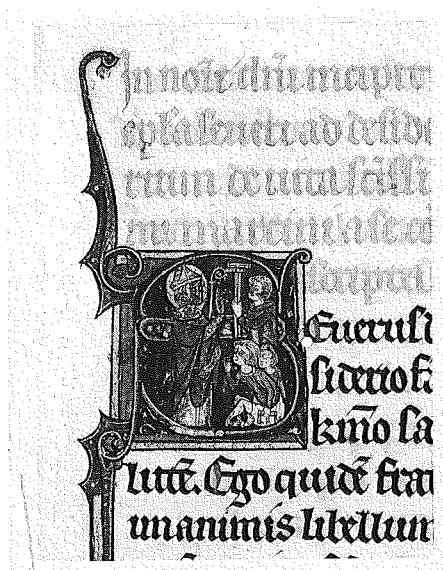 In noīe dñi incipit
epl'a seueri ad desid
rium de uita sc̄issi
mi martini a se co
scripta
Seuerus
siderio fr
kmo̅ sa
lutē. Ego quidē frat
unanimis libellum